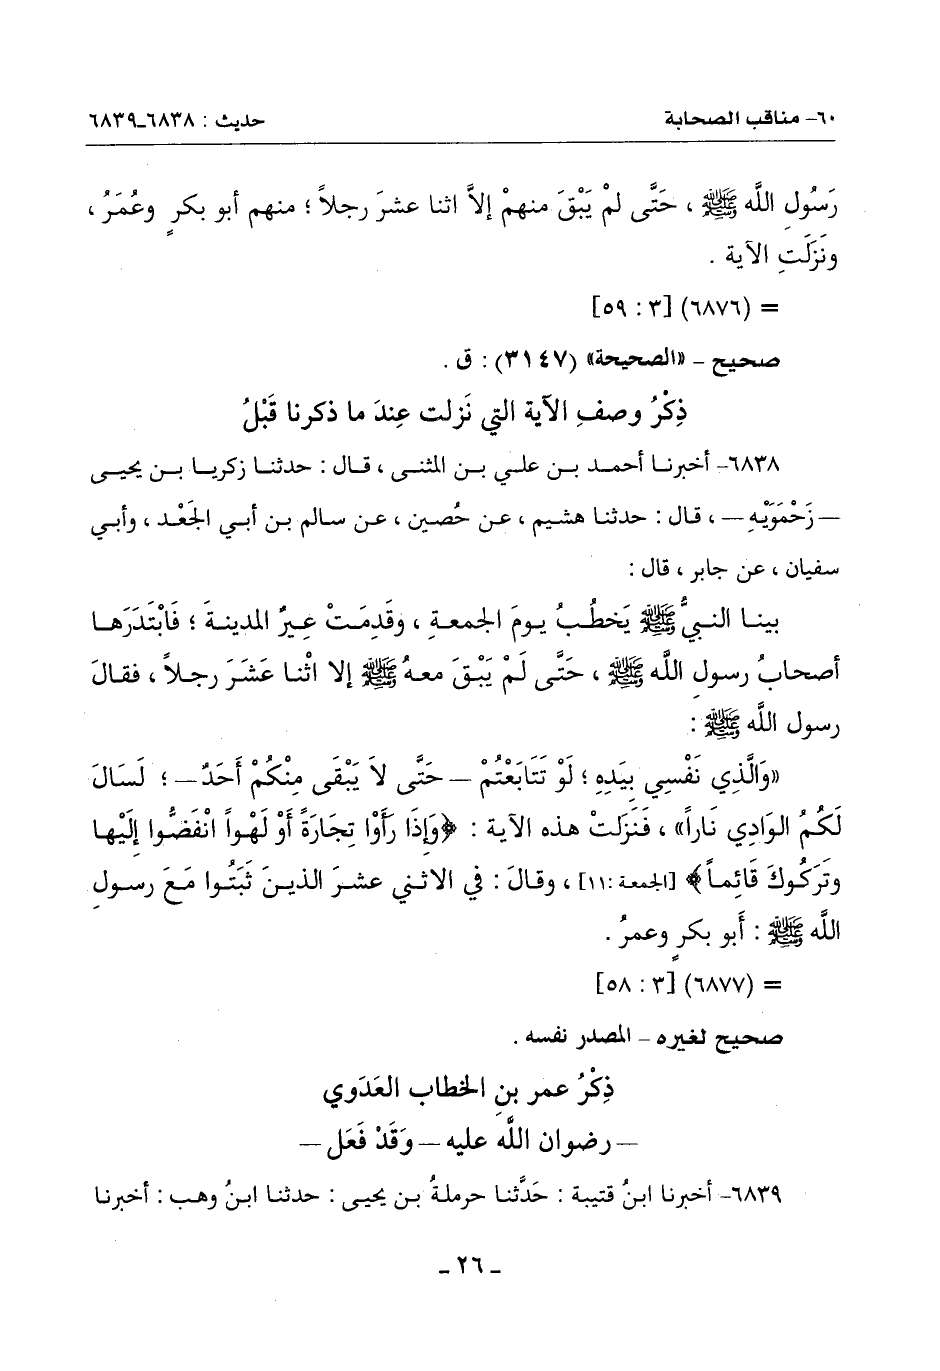 ٦٠- مناقب الصحابة
حديث : ٦٨٣٨-٦٨٣٩
رَسُولِ اللَّه ﷺ ، حَتَّى لمْ يَبْقَ منهمْ إلاَّ اثنا عشرَ رجلاً ؛ منهم أبو بكرٍ وعُمَرُ ،
ونَزَلَتِ الآية .
= (٦٨٧٦) [٣ : ٥٩]
صحيح – «الصحيحة» (٣١٤٧) : ق .
ذِكْرُ وصفِ الآية التي نَزلت عِندَ ما ذكرنا قَبْلُ
٦٨٣٨- أخبرنا أحمد بن علي بن المثنى ، قال : حدثنا زكريا بن يحيى
– زَحْمَوَيْهِ – ، قال : حدثنا هشيم ، عن حُصين ، عن سالم بن أبي الجَعْد ، وأبي
سفيان ، عن جابر ، قال :
بينا النبيُّ ﷺ يَخطُبُ يومَ الجمعةِ ، وقَدِمَتْ عِيرٌ المدينةَ ؛ فَابْتَدَرَها
أصحابُ رسولِ اللَّه ﷺ ، حَتَّى لَمْ يَبْقَ معهُ ﷺ إلا اثْنا عَشَرَ رجلاً ، فقالَ
رسول اللَّه ﷺ :
«وَالَّذِي نَفْسِي بِيَدِهِ ؛ لَوْ تَتَابَعْتُمْ – حَتَّى لاَ يَبْقَى مِنْكُمْ أَحَدٌ – ؛ لَسَالَ
لَكُمُ الوَادِي نَاراً» ، فَنَزَلَتْ هذه الآية : ﴿وَإِذَا رَأَوْا تِجَارَةً أَوْ لَهْواً انْفَضُّوا إلَيْها
وتَرَكُوكَ قَائِماً﴾ [الجمعة :١١] ، وقالَ : في الاثني عشرَ الذينَ ثَبَتُوا مَعَ رسولِ
اللَّه ﷺ : أَبو بكرٍ وعمرُ .
= (٦٨٧٧) [٣ : ٥٨]
صحيح لغيره – المصدر نفسه .
ذِكْرُ عمر بنِ الخطاب العَدَوي
– رضوان اللَّه عليه – وَقَدْ فَعَل –
٦٨٣٩- أخبرنا ابنُ قتيبة : حَدَّثنا حرملةُ بن يحيى : حدثنا ابنُ وهب : أخبرنا
- ٢٦ -